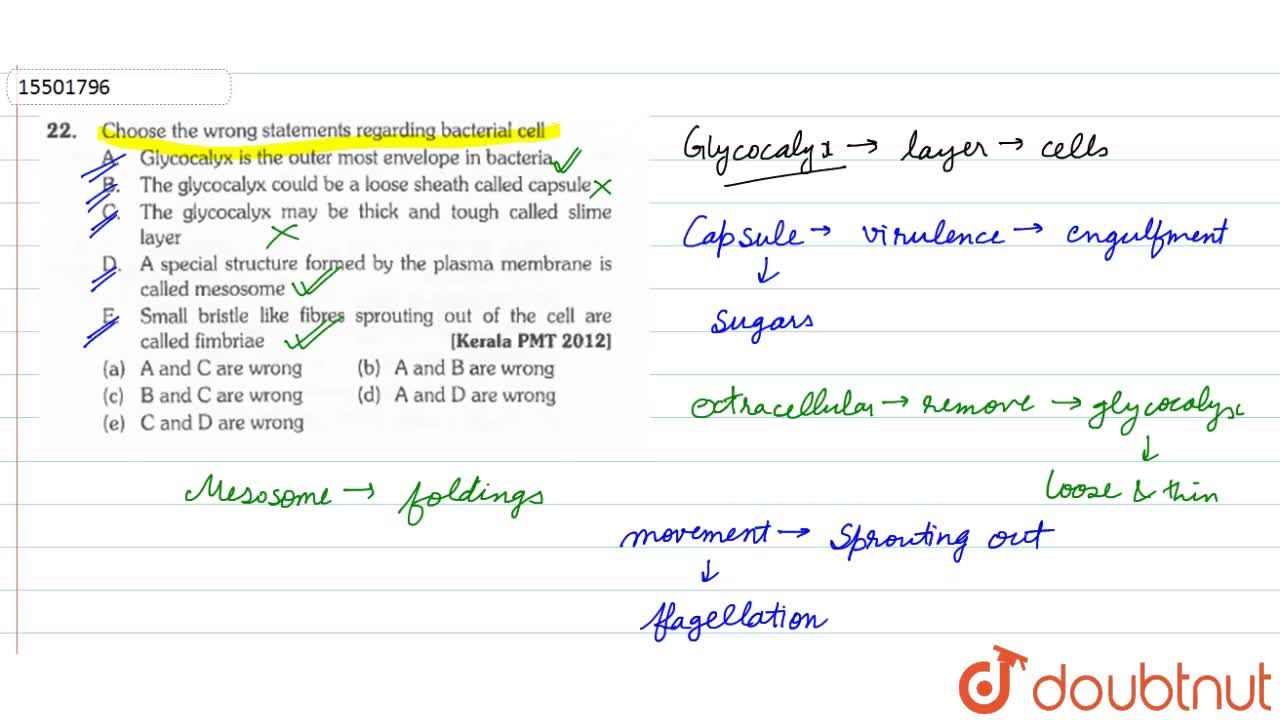 15501796
22. Choose the wrong statements regarding bacterial cell
A. Glycocalyx is the outer most envelope in bacteria
B. The glycocalyx could be a loose sheath called capsule
C. The glycocalyx may be thick and tough called slime
layer
D. A special structure formed by the plasma membrane is
called mesosome
E. Small bristle like fibres sprouting out of the cell are
called fimbriae [Kerala PMT 2012]
(a) A and C are wrong (b) A and B are wrong
(c) B and C are wrong (d) A and D are wrong
(e) C and D are wrong
Glycocalyx → layer → cells
Capsule → virulence → engulfment
↓
Sugars
extracellular → remove → glycocalyx
↓
loose & thin
Mesosome → foldings
movement → Sprouting out
↓
flagellation
doubtnut